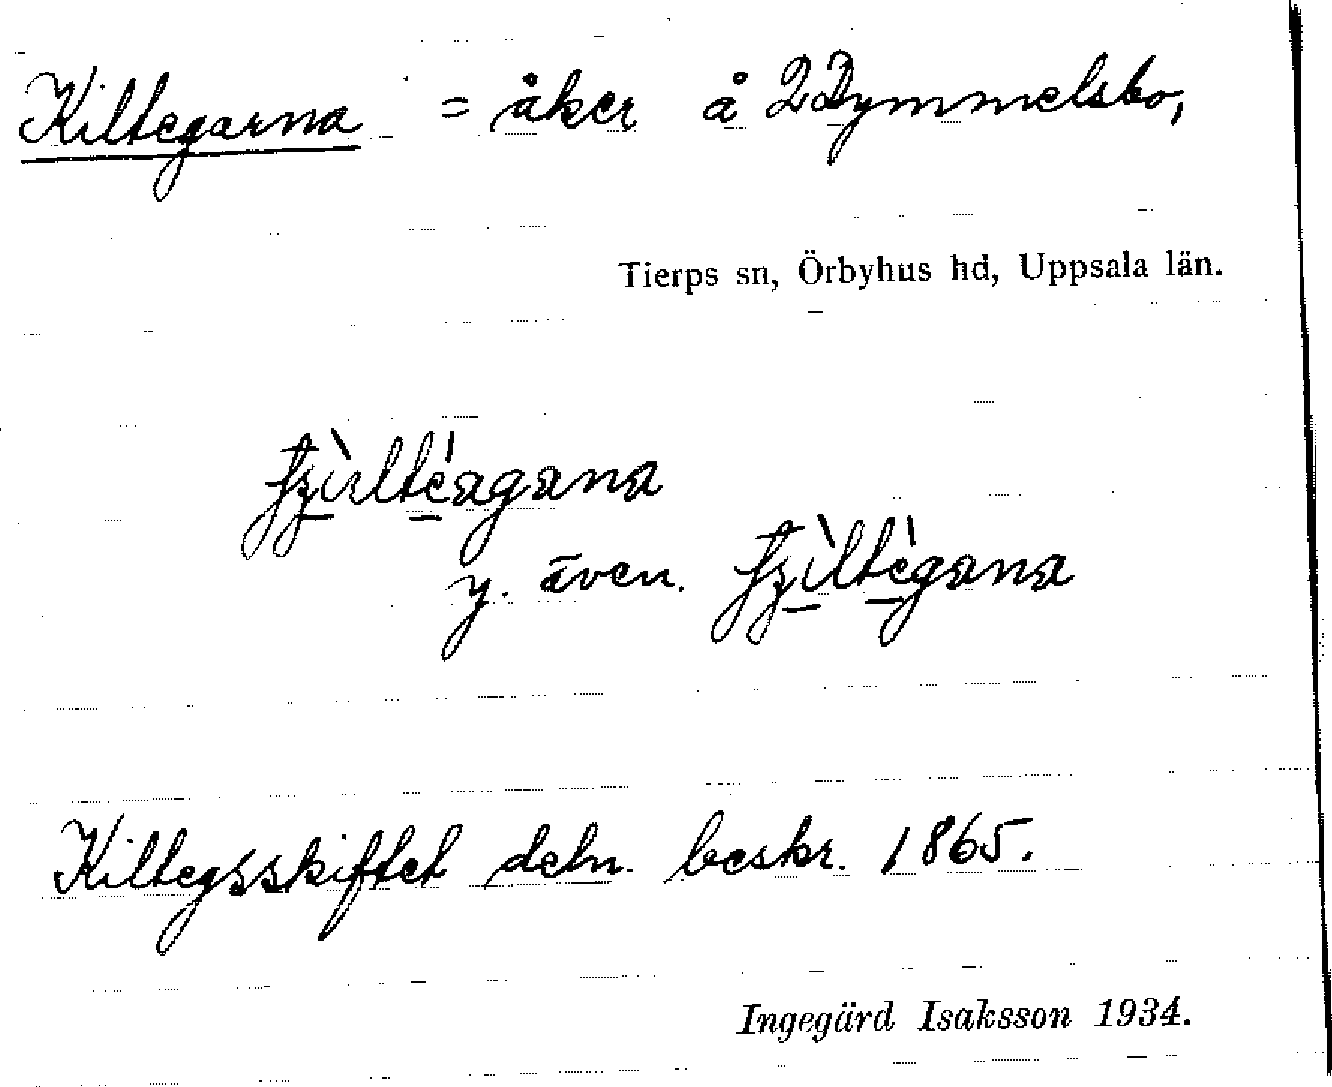 Kiltegarna = åker å 2 Dymmelsbo,
Tierps sn, Örbyhus hd, Uppsala län.
y. även.
Kiltegsskiftet deln. beskr. 1865.
Ingegärd Isaksson 1934.